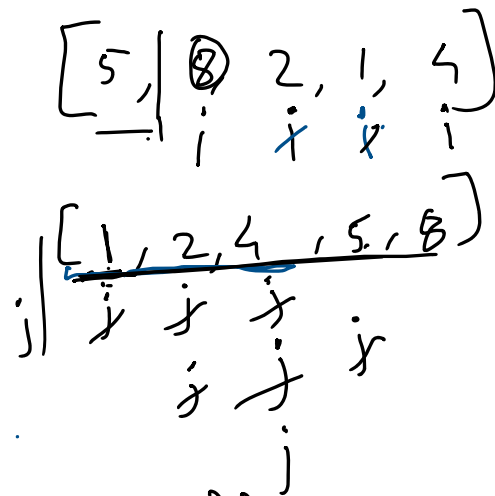 [5, | 8, 2, 1, 4]
i i i i
[1, 2, 4, 5, 8]
j | j j j j
j j
j